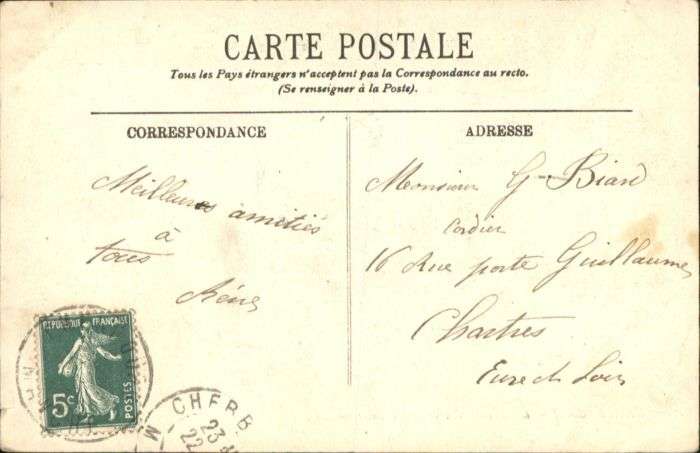 CARTE POSTALE
Tous les Pays étrangers n'acceptent pas la Correspondance au recto.
(Se renseigner à la Poste).
CORRESPONDANCE
Meilleures amitiés
à
tous
René
ADRESSE
Monsieur G. Biard
Cordier
16 Rue porte Guillaume
Chartres
Eure et Loir
REPUBLIQUE FRANÇAISE
5c
POSTES
CHERB
23
22